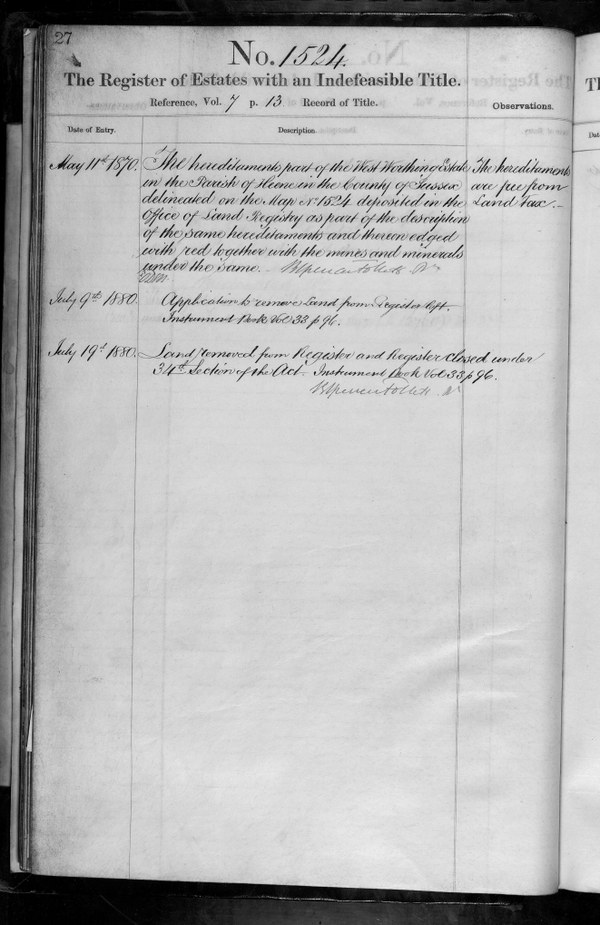 27
No. 1524.
The Register of Estates with an Indefeasible Title.
Reference, Vol. 7 p. 13 Record of Title.
Observations.
Date of Entry.
Description.
May 11th 1870.
The hereditaments part of the West Worthing Estate
in the Parish of Heene in the County of Sussex
delineated on the Map No 1524 deposited in the
Office of Land Registry as part of the description
of the same hereditaments and thereon edged
with red together with the mines and minerals
under the same.
The hereditaments
are free from
Land Tax.
July 9th 1880.
Application to remove Land from Register left.
Instrument Book Vol 33 p 96.
July 19th 1880.
Land removed from Register and Register closed under
34th Section of the Act. Instrument Book Vol 33 p 96.